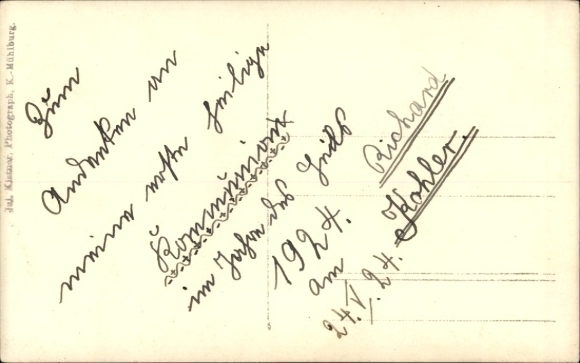 Zum
Andenken an
meine erste heilige
Kommunion
im Jahre des Heils
1924.
am
24.V.24.
Richard
Kohler.
Jul. Kistow, Photograph, K.-Mühlburg.